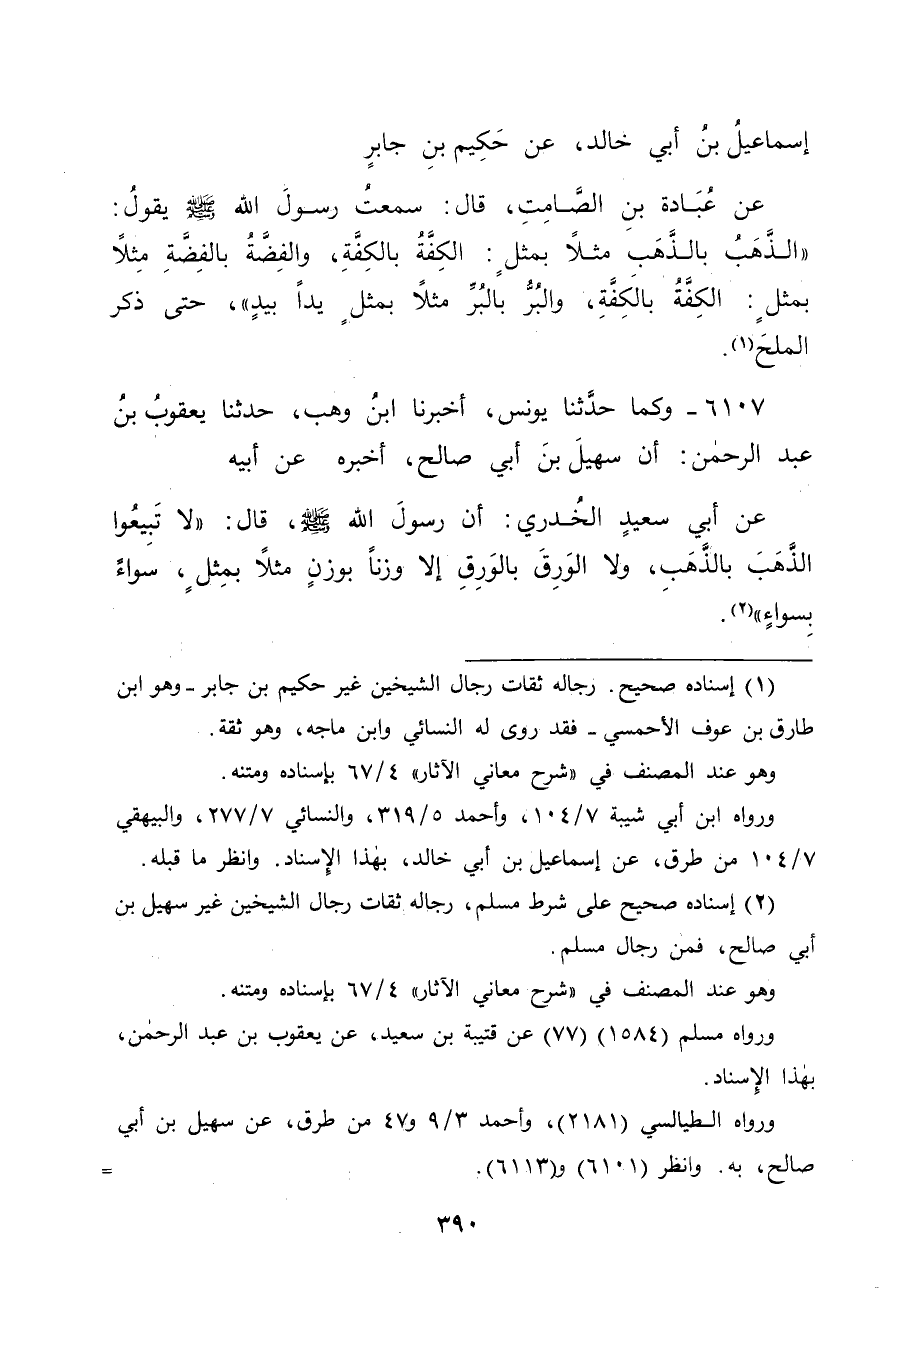 إسماعيلُ بنُ أبي خالد، عن حَكِيم بنِ جابرٍ
عن عُبَادة بنِ الصَّامِتِ، قال: سمعتُ رسولَ الله ﷺ يقولُ:
«الذَّهَبُ بالذَّهَبِ مثلاً بمثلٍ: الكِفَّةُ بالكِفَّة، والفِضَّةُ بالفِضَّةِ مِثلاً
بمثلٍ: الكِفَّةُ بالكِفَّةِ، والبُرُّ بالبُرِّ مثلاً بمثلٍ يداً بيدٍ»، حتى ذكر
الملحَ(١).
٦١٠٧ - وكما حدَّثنا يونس، أخبرنا ابنُ وهب، حدثنا يعقوبُ بنُ
عبد الرحمٰن: أن سهيلَ بنَ أبي صالح، أخبره عن أبيه
عن أبي سعيدٍ الخُدري: أن رسولَ الله ﷺ، قال: «لا تَبِيعُوا
الذَّهَبَ بالذَّهَبِ، ولا الوَرِقَ بالوَرِقِ إلا وزناً بوزنٍ مثلاً بمِثلٍ، سواءً
بِسواءٍ»(٢).
(١) إسناده صحيح. رجاله ثقات رجال الشيخين غير حكيم بن جابر - وهو ابن
طارق بن عوف الأحمسي - فقد روى له النسائي وابن ماجه، وهو ثقة.
وهو عند المصنف في «شرح معاني الآثار» ٦٧/٤ بإسناده ومتنه.
ورواه ابن أبي شيبة ١٠٤/٧، وأحمد ٣١٩/٥، والنسائي ٢٧٧/٧، والبيهقي
١٠٤/٧ من طرق، عن إسماعيل بن أبي خالد، بهٰذا الإِسناد. وانظر ما قبله.
(٢) إسناده صحيح على شرط مسلم، رجاله ثقات رجال الشيخين غير سهيل بن
أبي صالح، فمن رجال مسلم.
وهو عند المصنف في «شرح معاني الآثار» ٦٧/٤ بإسناده ومتنه.
ورواه مسلم (١٥٨٤) (٧٧) عن قتيبة بن سعيد، عن يعقوب بن عبد الرحمٰن،
بهٰذا الإِسناد.
ورواه الطيالسي (٢١٨١)، وأحمد ٩/٣ و٤٧ من طرق، عن سهيل بن أبي
صالح، به. وانظر (٦١٠١) و(٦١١٣). =
٣٩٠